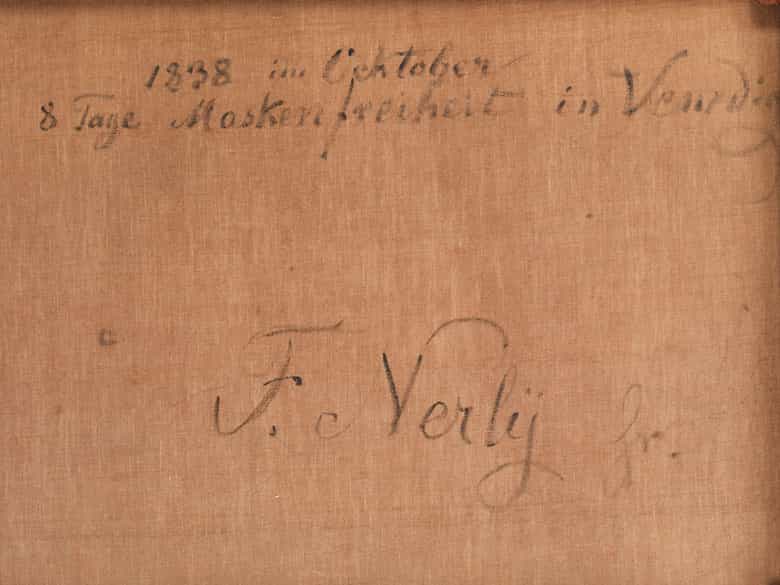 1838 im Ocktober
8 Tage Maskenfreiheit in Venedig
F. c Verlÿ fr.